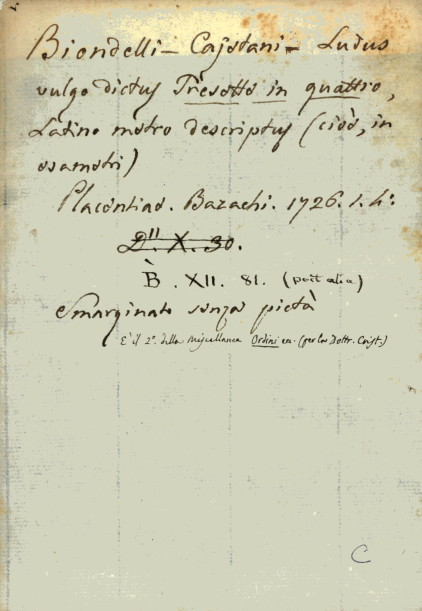 Biondelli - Cajetani - Ludus
vulgo dictus Tresette in quattro,
Latino metro descriptus (cioè, in
esametri)
Placentiae. Bazachi. 1726. 1. 4º:
D". X. 30.
B̀. XII. 81. (post alia)
Smarginato senza pietà
E' il 2º. della Miscellanea Ordini ec. (per la Dottr. Crist.)
C